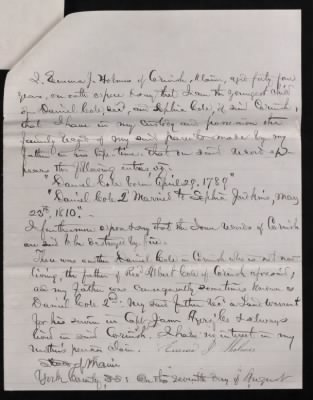 I, Emma J. Holmes of Cornish, Maine, aged forty four
years, on oath depose & say, that I am the youngest child
of Daniel Cole, dec'd, and Sophia Cole, of said Cornish,
that I have in my custody and possession the
family record of my said parents made by my
father in his life time. that on said record ap-
pears the following entries viz.
"Daniel Cole born April 29, 1789"
"Daniel Cole 2d Married to Sophia Jenkins, May
25th, 1810" -
I further depose & say that the Town records of Cornish
are said to be destroyed by fire.
There was another Daniel Cole in Cornish who is not now
living, the father of Rev. Albert Cole of Cornish aforesaid,
and my father was consequently sometimes known as
Daniel Cole 2nd. My said father had a land warrant
for his service in Capt. James Ayer's Co. & always
lived in said Cornish. I have no interest in my
mother's pension claim.
Emma J. Holmes
State of Maine
York County, SS: On this seventh day of August